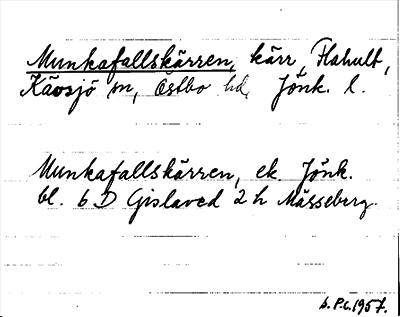 Munkafallskärren, kärr, Flahult,
Kävsjö sn, Östbo hd, Jönk. l.
Munkafallskärren, ek. Jönk.
bl. 6 D Gislaved 2 h Mässeberg.
b. P.C. 1957.